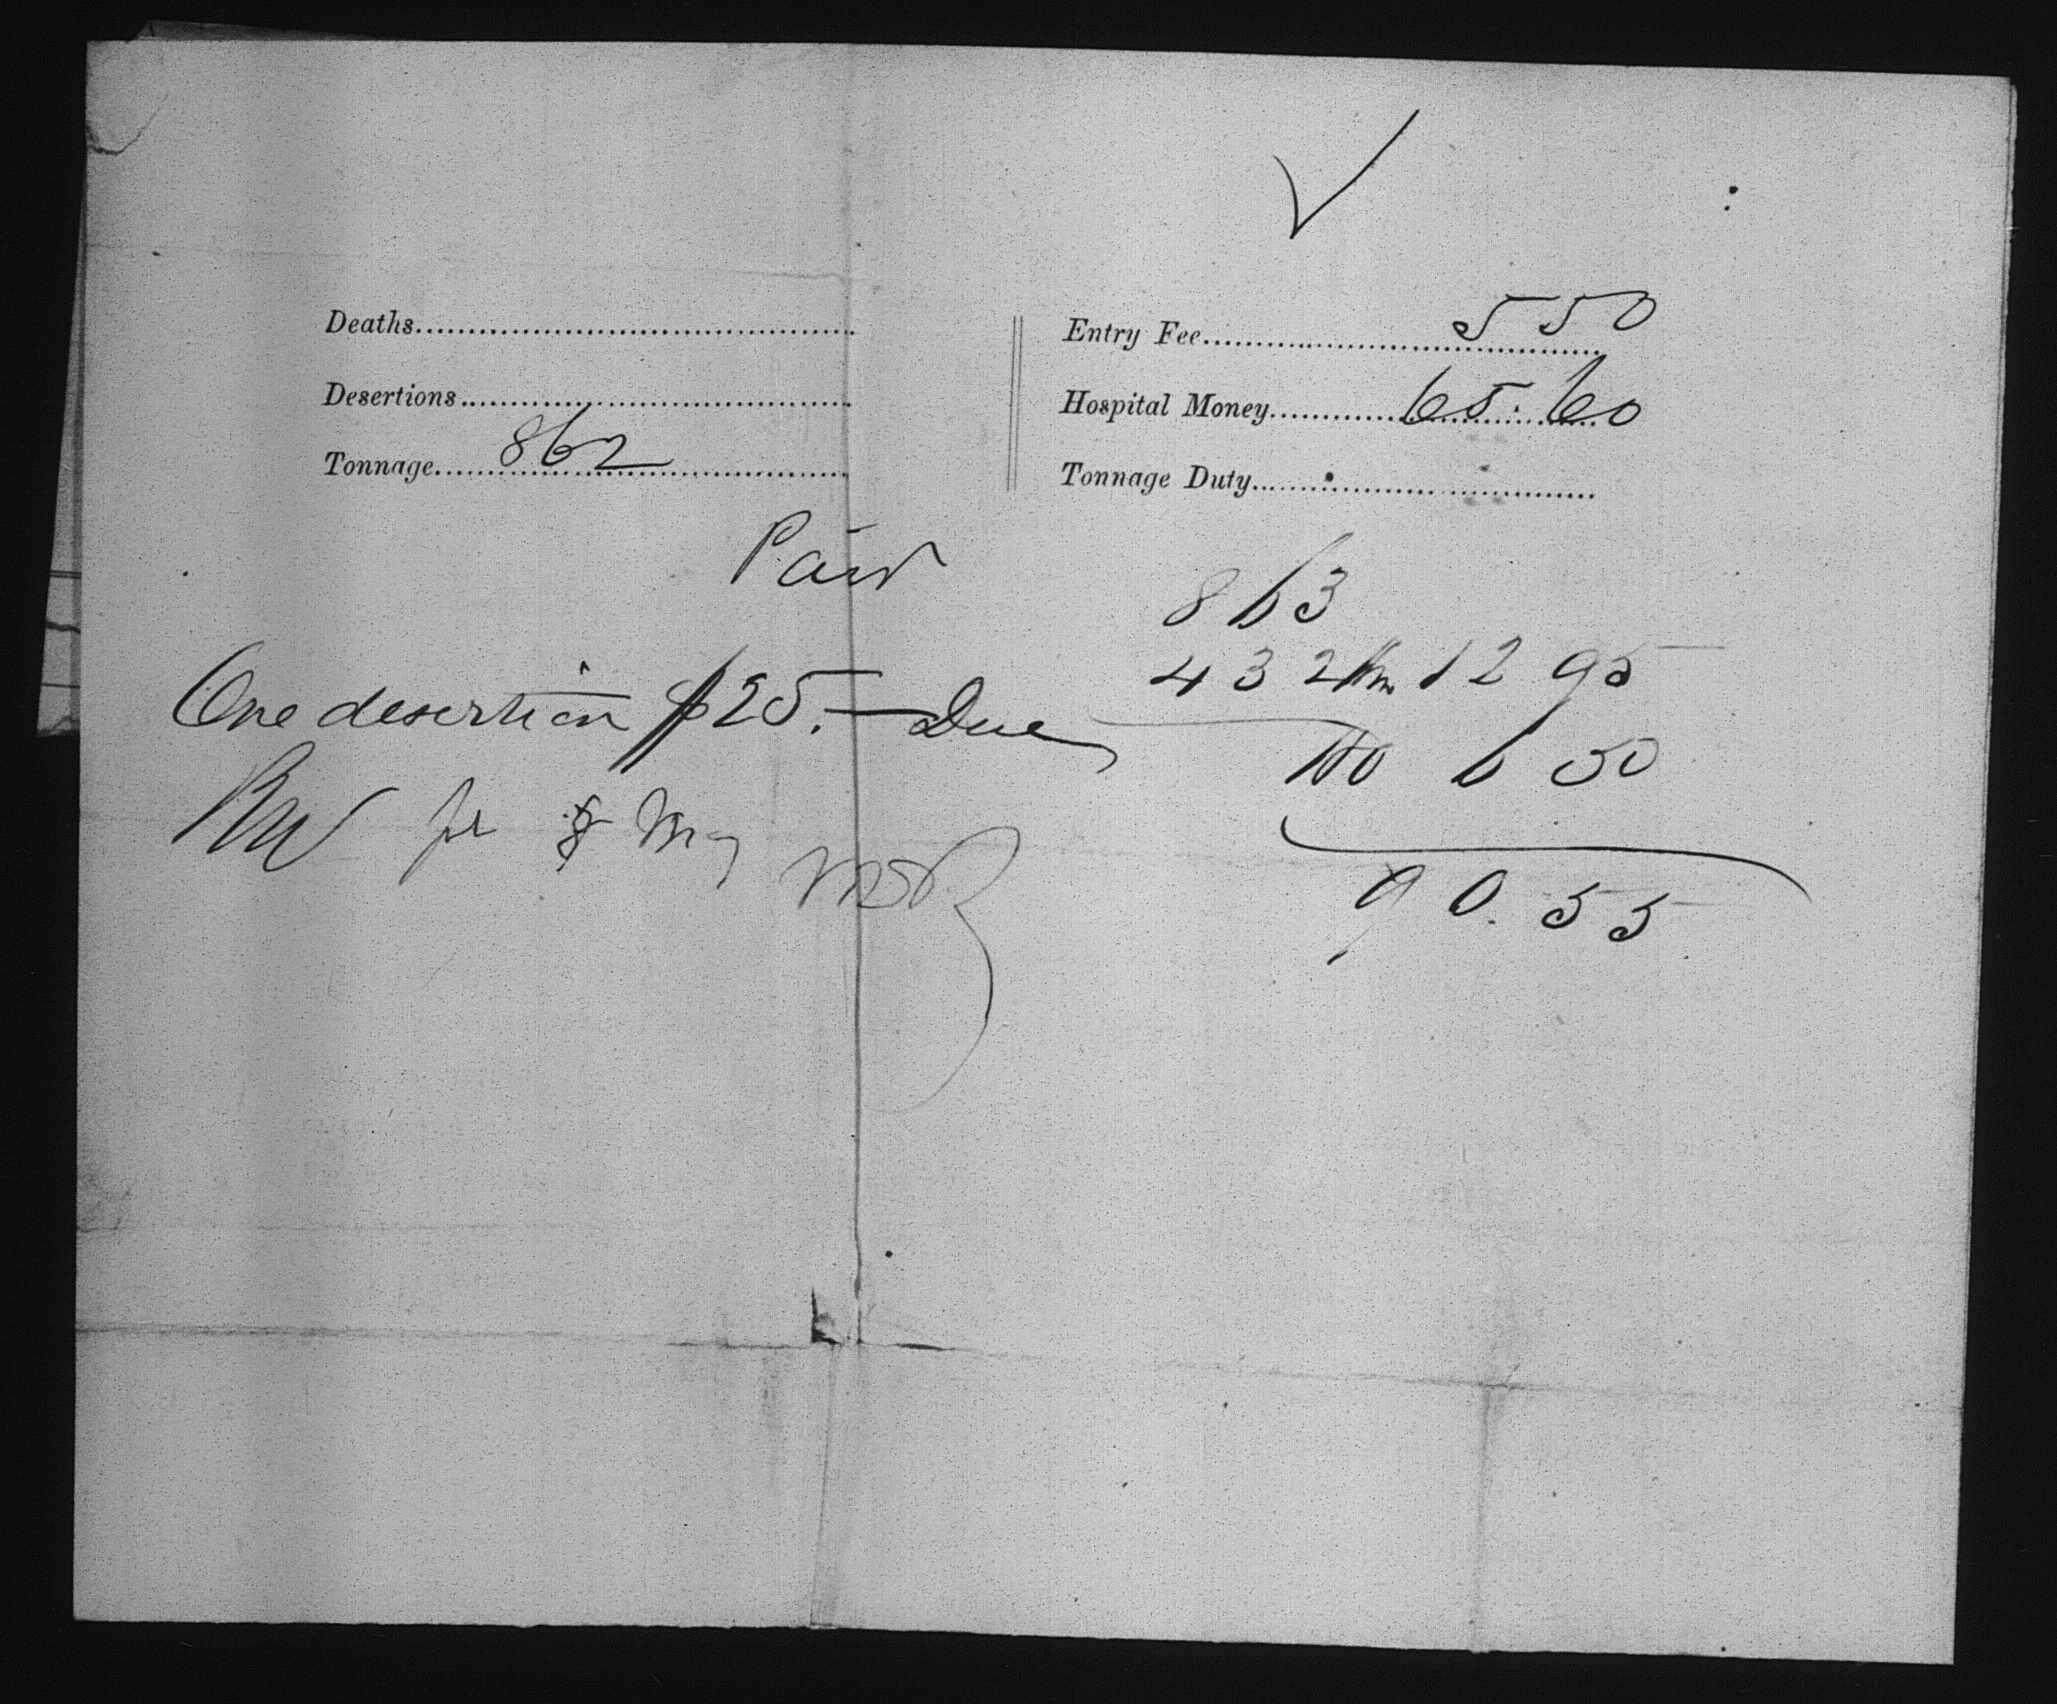 ✓
Deaths
Desertions
Tonnage 862
Entry Fee 5 50
Hospital Money 65.60
Tonnage Duty
Paid
One desertion $25.— Due
863
432 12 95
6 50
90.55